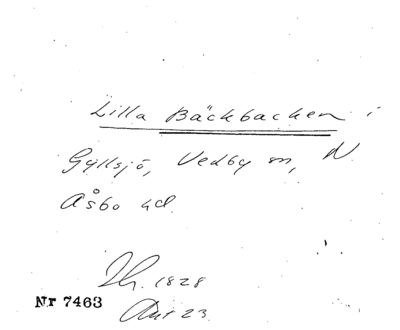 Lilla Bäckbacken i
Gyllsjö, Vedby sn, N
Åsbo hd.
1828
Nr 7463
23